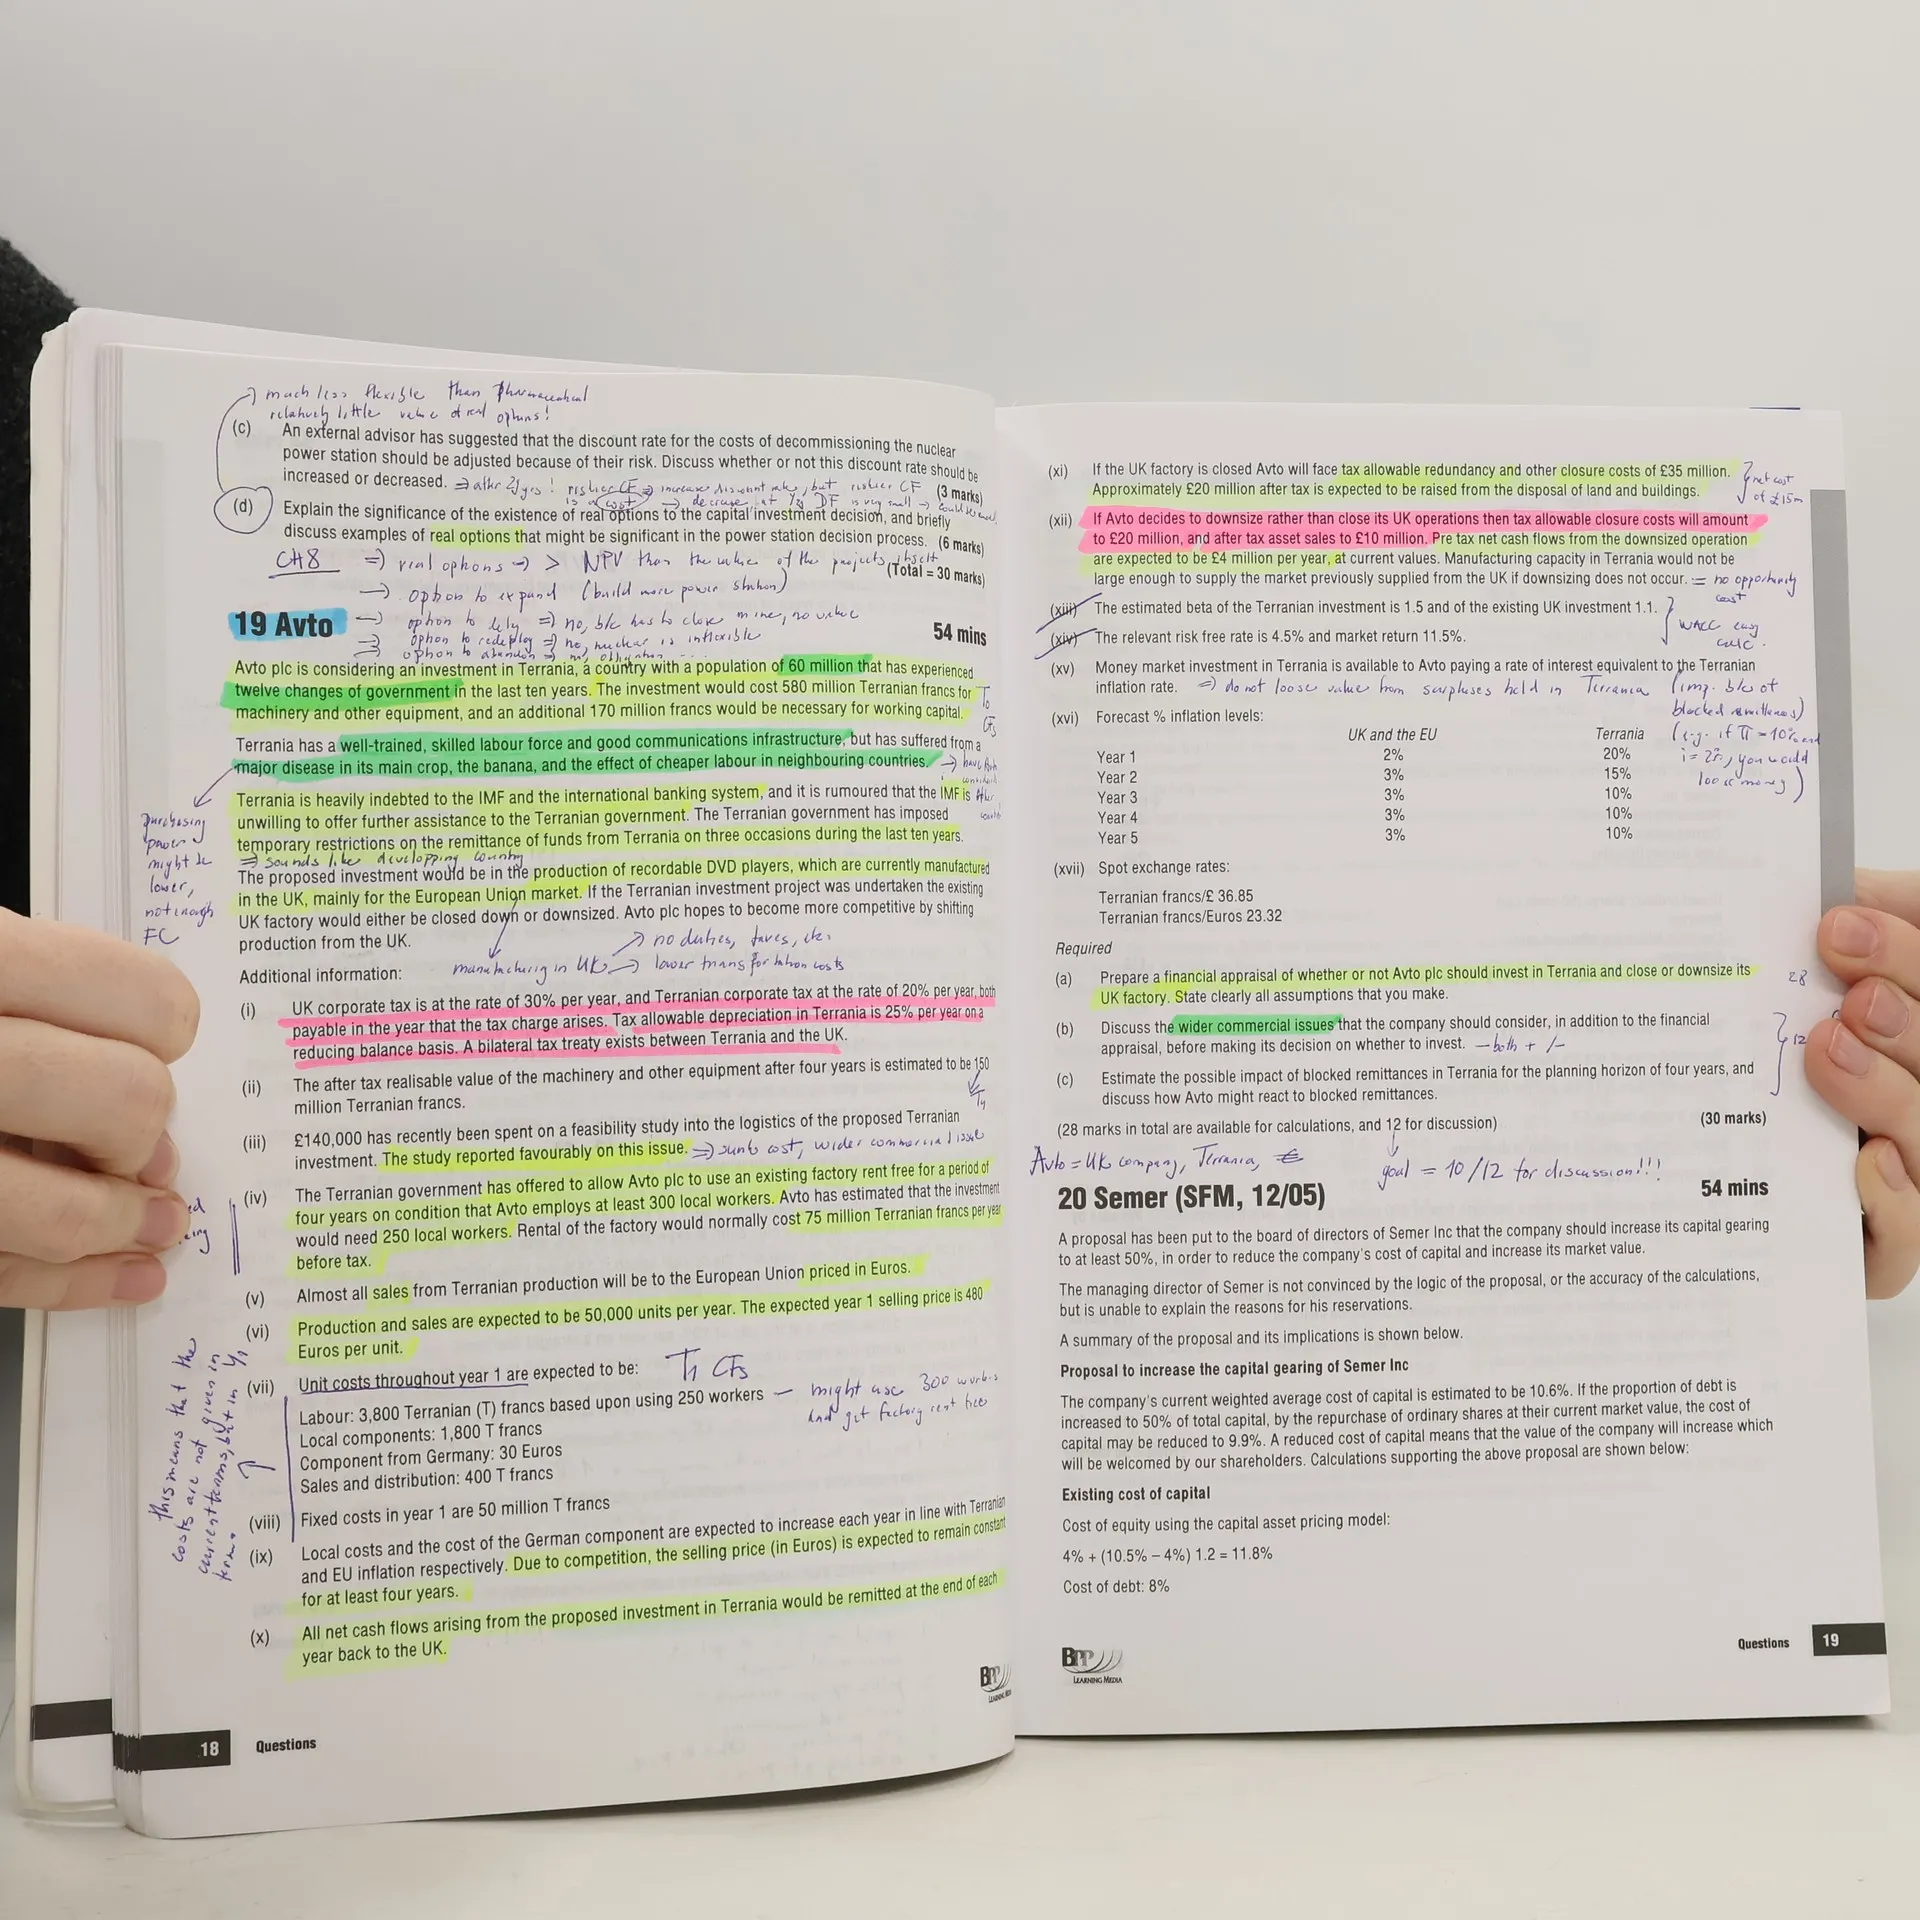 much less flexible than pharmaceutical
relatively little value of real options!
(c) An external advisor has suggested that the discount rate for the costs of decommissioning the nuclear
power station should be adjusted because of their risk. Discuss whether or not this discount rate should be
increased or decreased. (3 marks)
(d) Explain the significance of the existence of real options to the capital investment decision, and briefly
discuss examples of real options that might be significant in the power station decision process. (6 marks)
CH8 ⇒ real options → > NPV than the value of the projects itself
(Total = 30 marks)
→ option to expand (build more power station)
→ option to ⇒ no, b/c has to close mine, no value
⇒ option to redeploy ⇒ no, nuclear is inflexible
⇒ option to abandon ⇒ no, obligation ...
19 Avto 54 mins
Avto plc is considering an investment in Terrania, a country with a population of 60 million that has experienced
twelve changes of government in the last ten years. The investment would cost 580 million Terranian francs for
machinery and other equipment, and an additional 170 million francs would be necessary for working capital.
To
CFs
Terrania has a well-trained, skilled labour force and good communications infrastructure, but has suffered from a
major disease in its main crop, the banana, and the effect of cheaper labour in neighbouring countries.
Terrania is heavily indebted to the IMF and the international banking system, and it is rumoured that the IMF is
unwilling to offer further assistance to the Terranian government. The Terranian government has imposed
temporary restrictions on the remittance of funds from Terrania on three occasions during the last ten years.
purchasing
power
might be
lower,
not enough
FC
⇒ sounds like developping country
The proposed investment would be in the production of recordable DVD players, which are currently manufactured
in the UK, mainly for the European Union market. If the Terranian investment project was undertaken the existing
UK factory would either be closed down or downsized. Avto plc hopes to become more competitive by shifting
production from the UK.
→ no duties, taxes, etc.
manufacturing in UK → lower transportation costs
Additional information:
(i) UK corporate tax is at the rate of 30% per year, and Terranian corporate tax at the rate of 20% per year, both
payable in the year that the tax charge arises. Tax allowable depreciation in Terrania is 25% per year on a
reducing balance basis. A bilateral tax treaty exists between Terrania and the UK.
(ii) The after tax realisable value of the machinery and other equipment after four years is estimated to be 150
million Terranian francs.
T4
(iii) £140,000 has recently been spent on a feasibility study into the logistics of the proposed Terranian
investment. The study reported favourably on this issue. ⇒ sunk cost, wider commercial issue
(iv) The Terranian government has offered to allow Avto plc to use an existing factory rent free for a period of
four years on condition that Avto employs at least 300 local workers. Avto has estimated that the investment
would need 250 local workers. Rental of the factory would normally cost 75 million Terranian francs per year
before tax.
(v) Almost all sales from Terranian production will be to the European Union priced in Euros.
(vi) Production and sales are expected to be 50,000 units per year. The expected year 1 selling price is 480
Euros per unit.
(vii) Unit costs throughout year 1 are expected to be: T1 CFs
Labour: 3,800 Terranian (T) francs based upon using 250 workers — might use 300 workers
and get factory rent free
Local components: 1,800 T francs
Component from Germany: 30 Euros
Sales and distribution: 400 T francs
this means that the
costs are not given in
current terms, but in Y1
terms
(viii) Fixed costs in year 1 are 50 million T francs
(ix) Local costs and the cost of the German component are expected to increase each year in line with Terranian
and EU inflation respectively. Due to competition, the selling price (in Euros) is expected to remain constant
for at least four years.
(x) All net cash flows arising from the proposed investment in Terrania would be remitted at the end of each
year back to the UK.
BPP
LEARNING MEDIA
18 Questions
(xi) If the UK factory is closed Avto will face tax allowable redundancy and other closure costs of £35 million.
Approximately £20 million after tax is expected to be raised from the disposal of land and buildings.
net cost
of £15m
(xii) If Avto decides to downsize rather than close its UK operations then tax allowable closure costs will amount
to £20 million, and after tax asset sales to £10 million. Pre tax net cash flows from the downsized operation
are expected to be £4 million per year, at current values. Manufacturing capacity in Terrania would not be
large enough to supply the market previously supplied from the UK if downsizing does not occur. = no opportunity
cost
(xiii) The estimated beta of the Terranian investment is 1.5 and of the existing UK investment 1.1.
(xiv) The relevant risk free rate is 4.5% and market return 11.5%.
WACC easy
calc.
(xv) Money market investment in Terrania is available to Avto paying a rate of interest equivalent to the Terranian
inflation rate. ⇒ do not loose value from surpluses held in Terrania (imp. b/c of
blocked remittances)
(xvi) Forecast % inflation levels:
(e.g. if π = 10% and
i = 2%, you would
loose money)
UK and the EU Terrania
Year 1 2% 20%
Year 2 3% 15%
Year 3 3% 10%
Year 4 3% 10%
Year 5 3% 10%
(xvii) Spot exchange rates:
Terranian francs/£ 36.85
Terranian francs/Euros 23.32
Required
(a) Prepare a financial appraisal of whether or not Avto plc should invest in Terrania and close or downsize its
UK factory. State clearly all assumptions that you make.
28
(b) Discuss the wider commercial issues that the company should consider, in addition to the financial
appraisal, before making its decision on whether to invest. — both + / -
12
(c) Estimate the possible impact of blocked remittances in Terrania for the planning horizon of four years, and
discuss how Avto might react to blocked remittances.
(30 marks)
(28 marks in total are available for calculations, and 12 for discussion)
Avto = UK company, Terrania, €
goal = 10/12 for discussion!!!
20 Semer (SFM, 12/05) 54 mins
A proposal has been put to the board of directors of Semer Inc that the company should increase its capital gearing
to at least 50%, in order to reduce the company's cost of capital and increase its market value.
The managing director of Semer is not convinced by the logic of the proposal, or the accuracy of the calculations,
but is unable to explain the reasons for his reservations.
A summary of the proposal and its implications is shown below.
Proposal to increase the capital gearing of Semer Inc
The company's current weighted average cost of capital is estimated to be 10.6%. If the proportion of debt is
increased to 50% of total capital, by the repurchase of ordinary shares at their current market value, the cost of
capital may be reduced to 9.9%. A reduced cost of capital means that the value of the company will increase which
will be welcomed by our shareholders. Calculations supporting the above proposal are shown below:
Existing cost of capital
Cost of equity using the capital asset pricing model:
4% + (10.5% – 4%) 1.2 = 11.8%
Cost of debt: 8%
BPP
LEARNING MEDIA
Questions 19